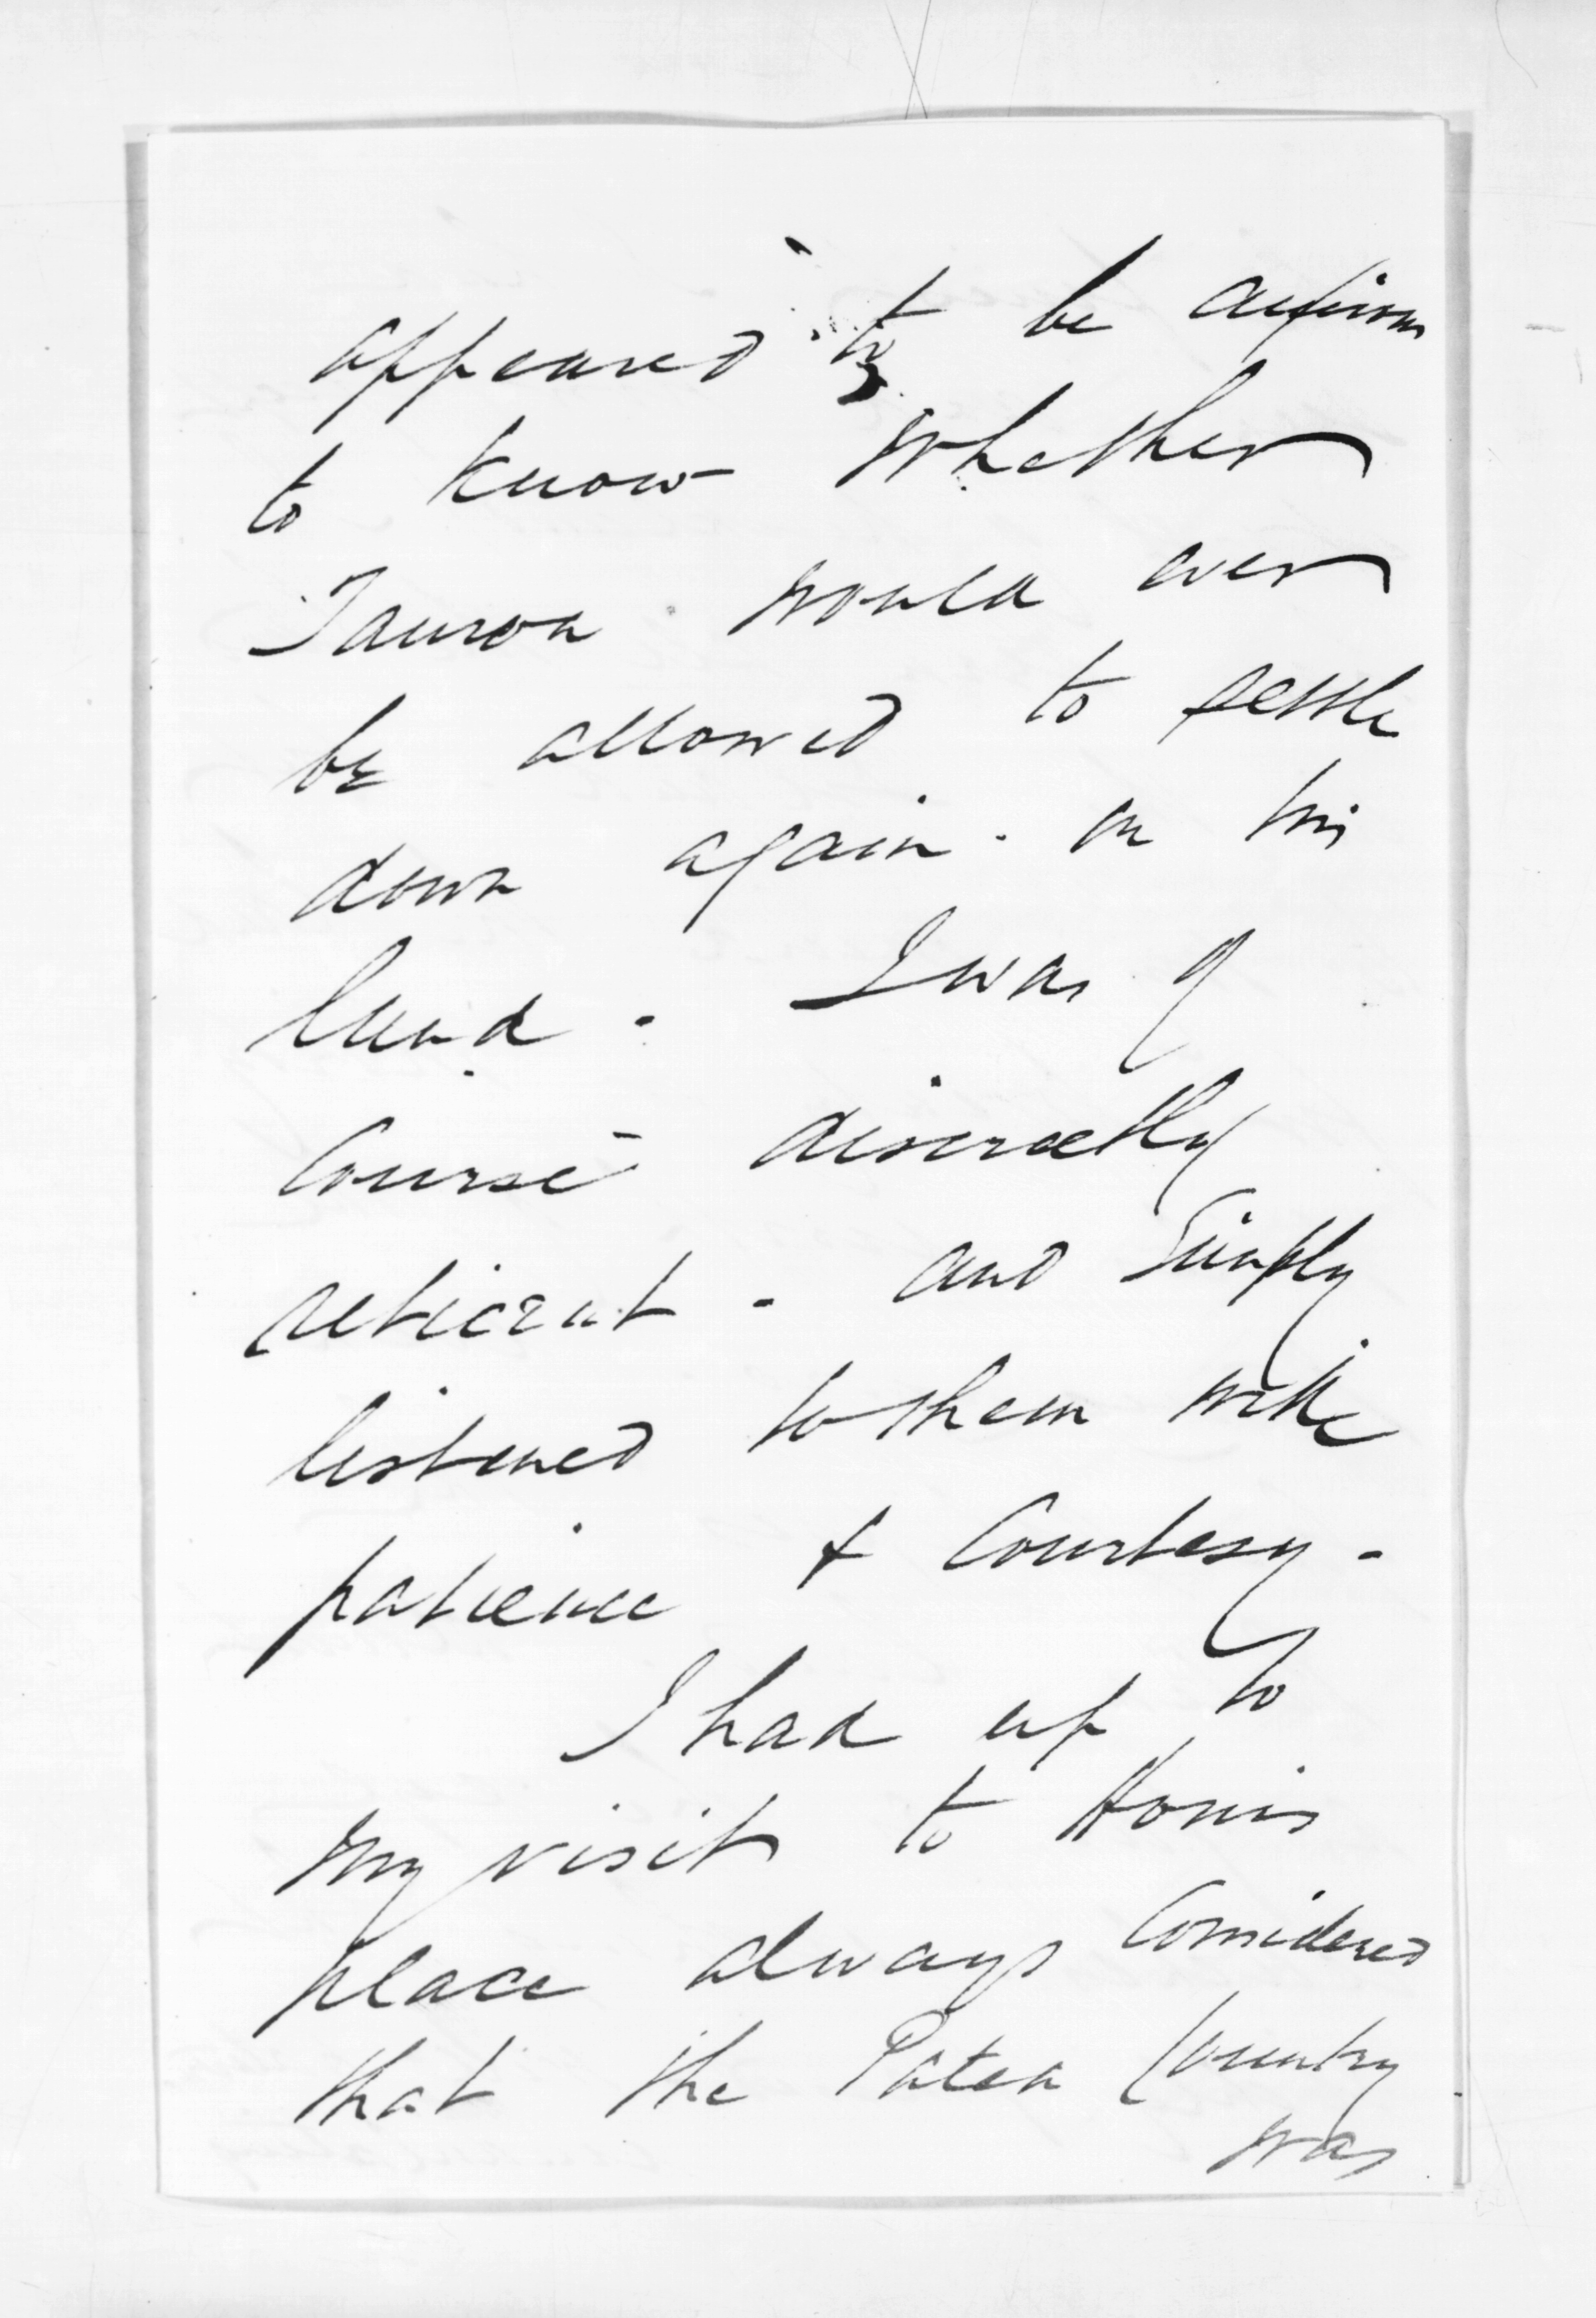 appeared to be anxious
to know whether
Tauroa would ever
be allowed to settle
down again. on his
land. I was of
Course discreetly
reticent. and Simply
listened to them with
patience & Courtesy.
I had up to
my visit to Honis
place always Considered
that the Patea Country
was